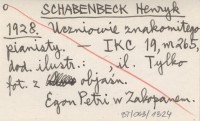 o
SCHABENBECK Henryk
1928. Uczniowie znakomitego
pianisty. — IKC 19, nr 265,
dod. ilustr.: ; il. Tylko
fot. z objaśn.
Egon Petri w Zakopanem.
57/003/1324